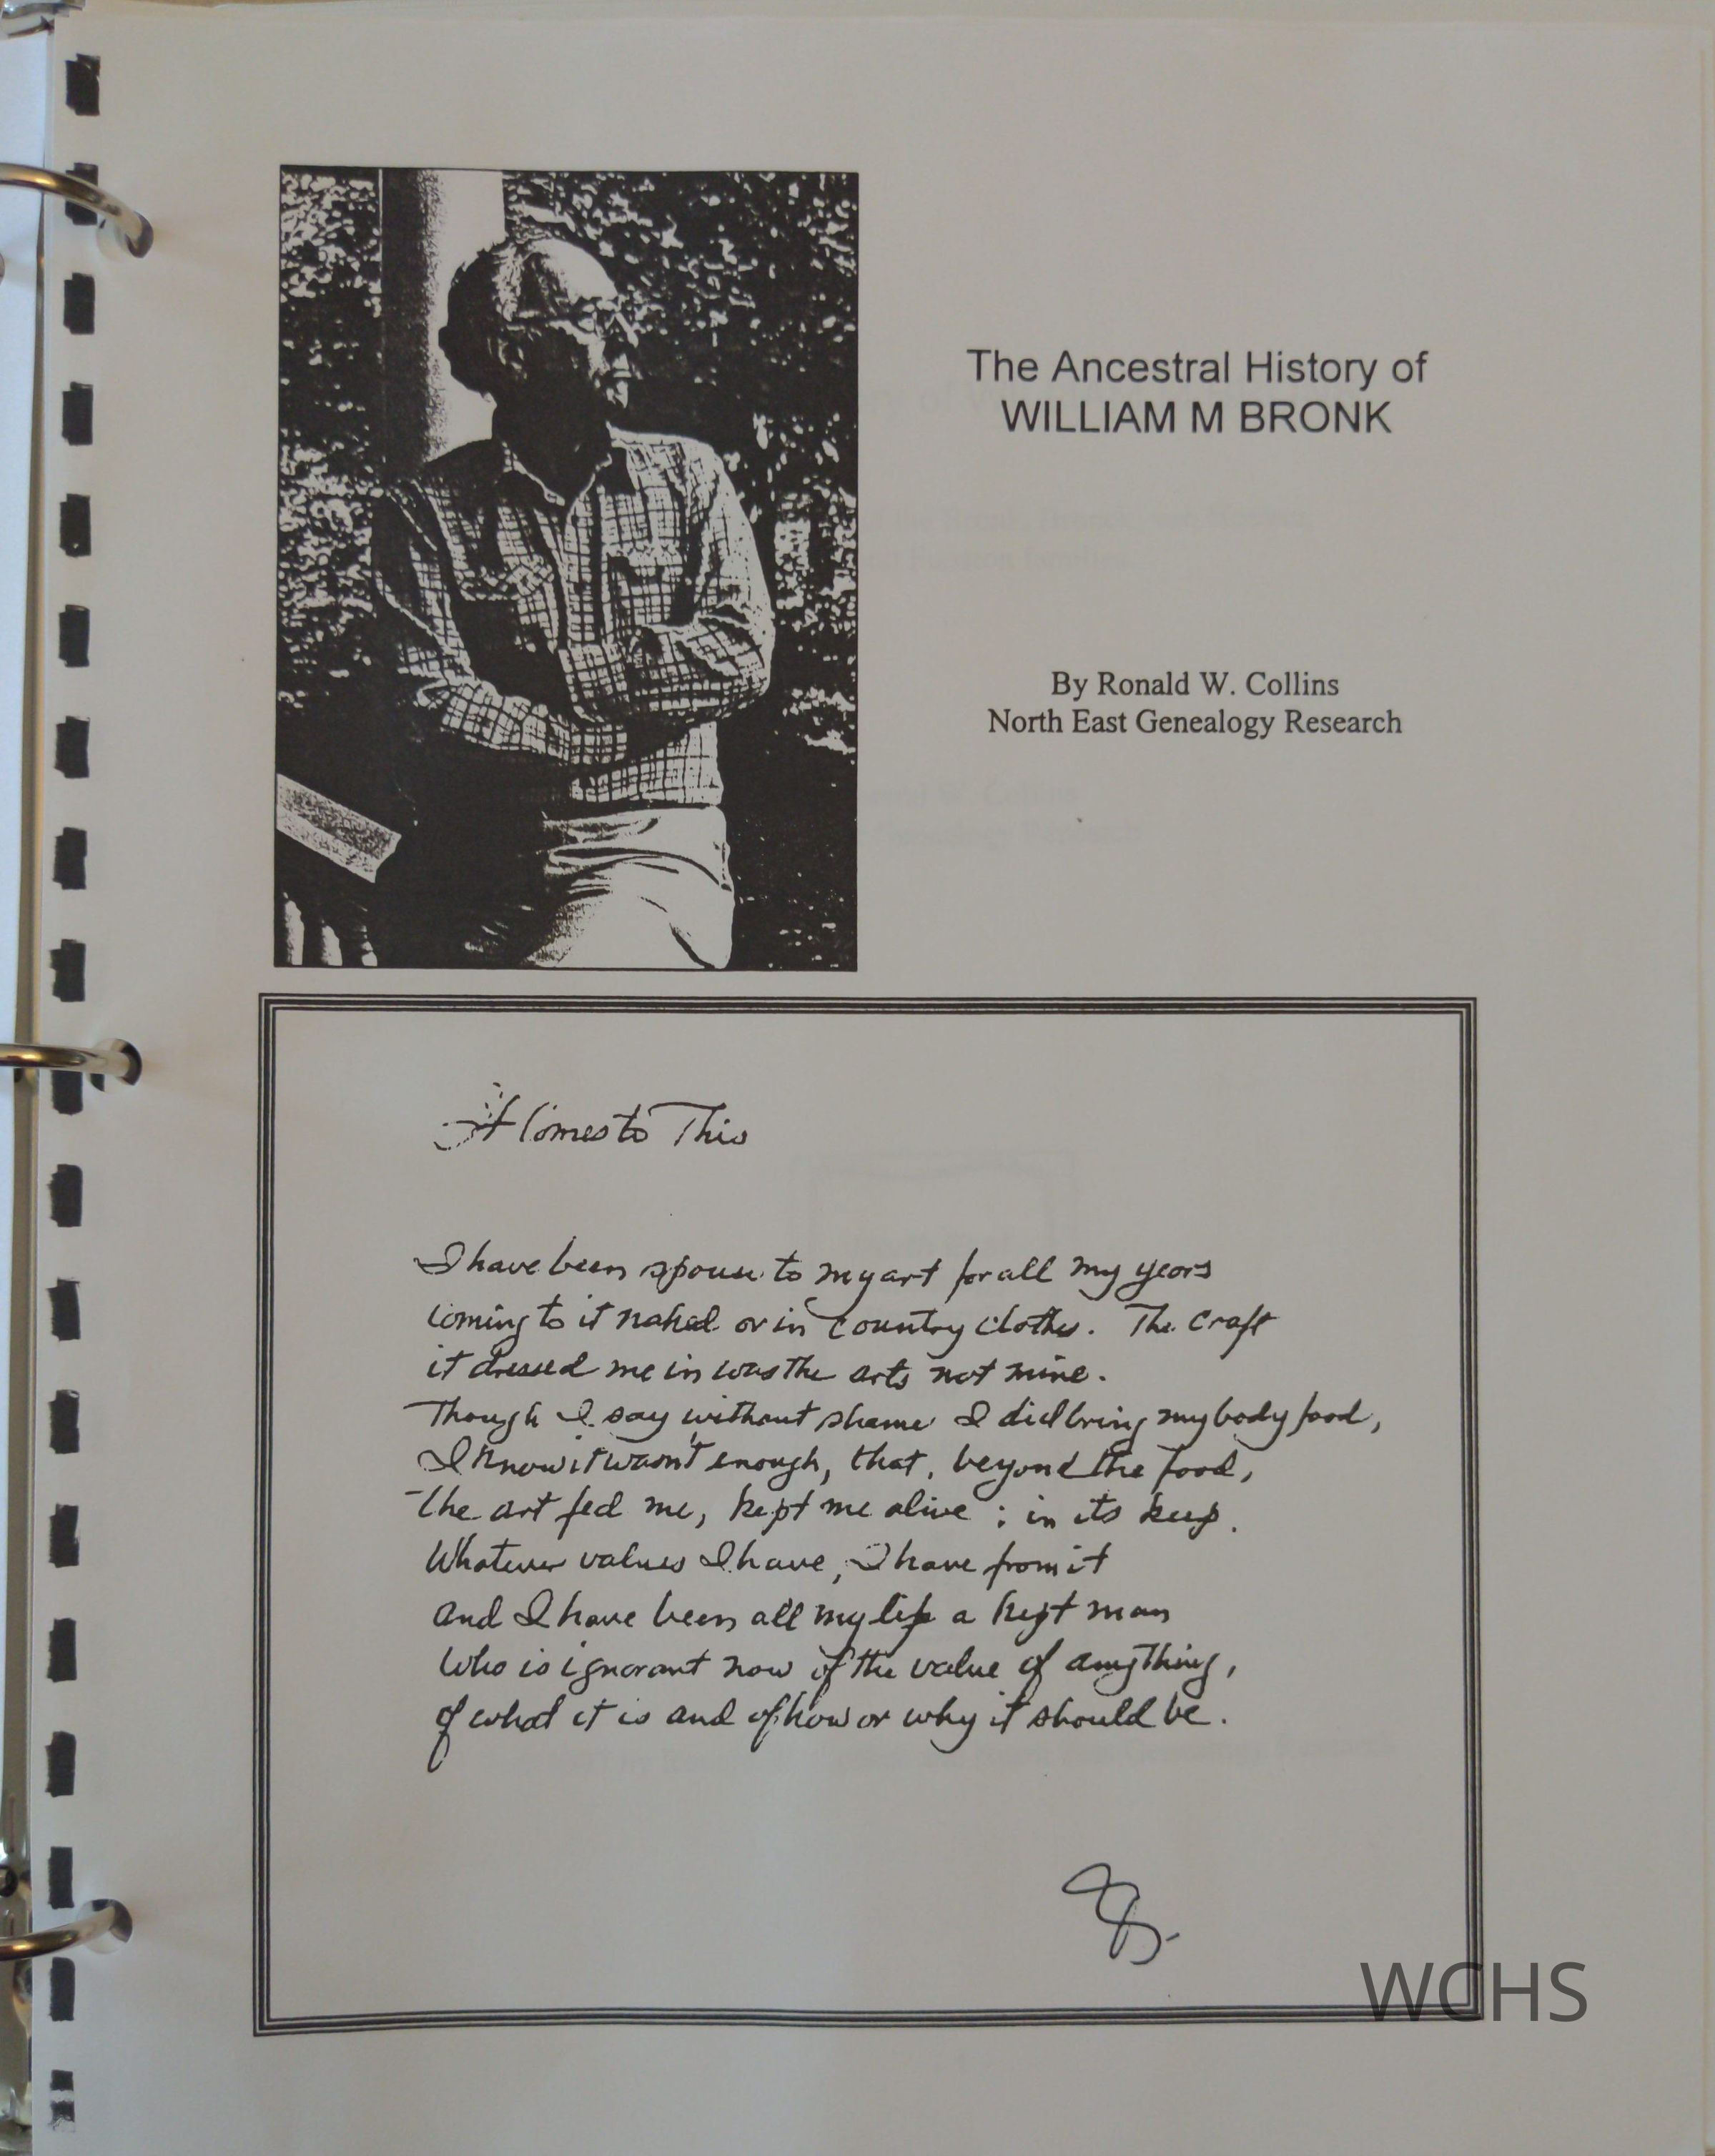 The Ancestral History of
WILLIAM M BRONK
By Ronald W. Collins
North East Genealogy Research
It Comes to This
I have been spouse to my art for all my years
coming to it naked or in country clothes. The craft
it dressed me in was the arts not mine.
Though I say without shame I did bring my body food,
I know it wasn't enough, that, beyond the food,
the art fed me, kept me alive; in its keep.
Whatever values I have, I have from it
and I have been all my life a kept man
who is ignorant now of the value of anything,
of what it is and of how or why it should be.
WCHS